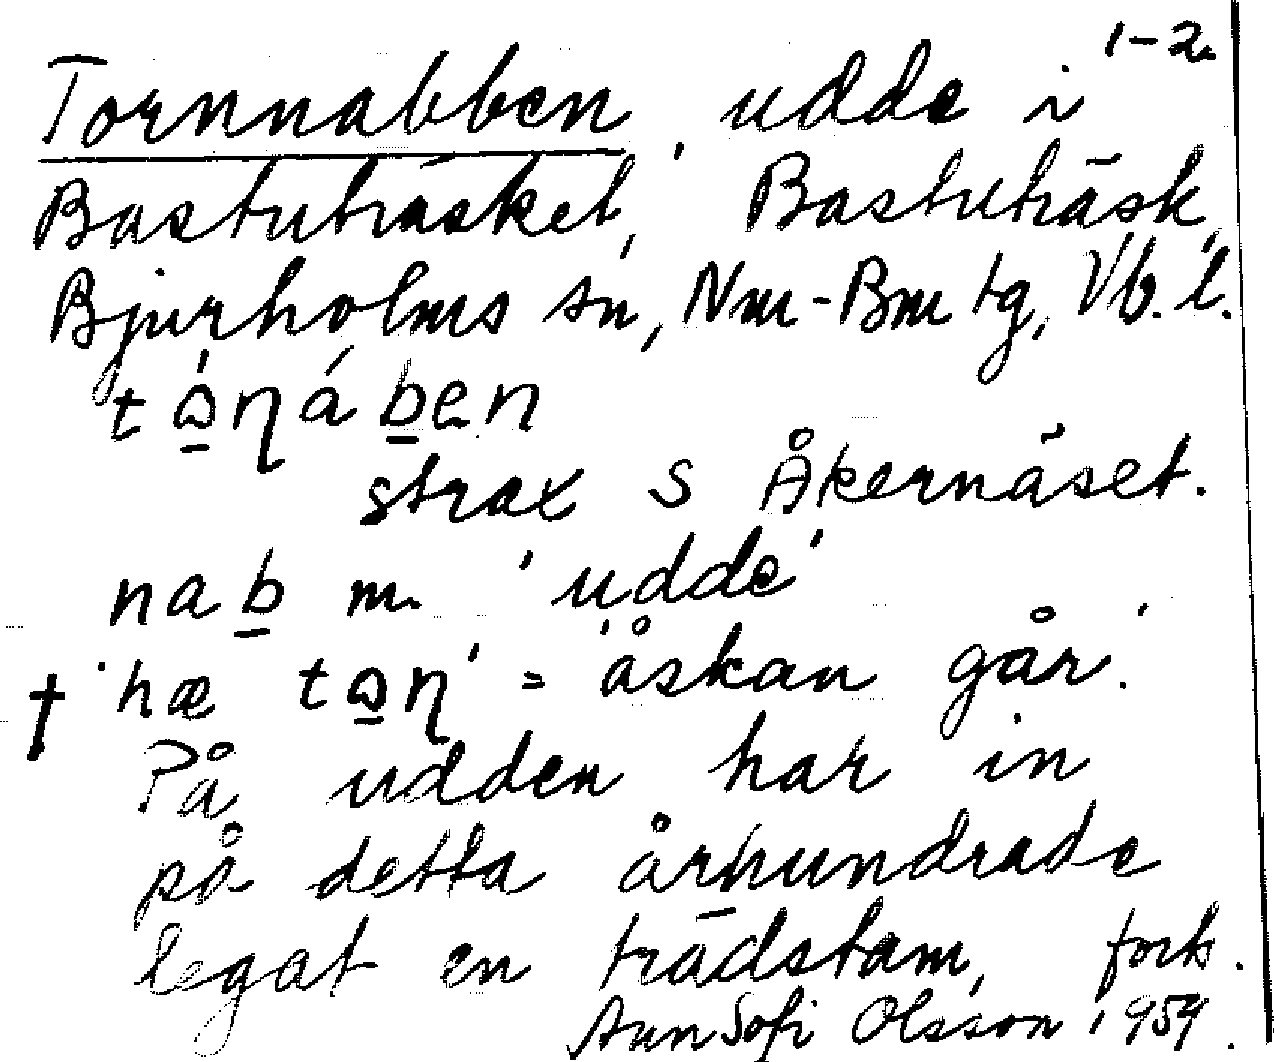 1-2.
Tornnabben, udde i
Bastuträsket, Bastuträsk,
Bjurholms sn, Nm-Bm tg, Vb. l.
strax S Åkernäset.
nab m. 'udde'
'hæ
= 'åskan går'.
På udden har in
på detta århundrade
legat en trädstam, forts.
AnnSofi Olsson 1959.